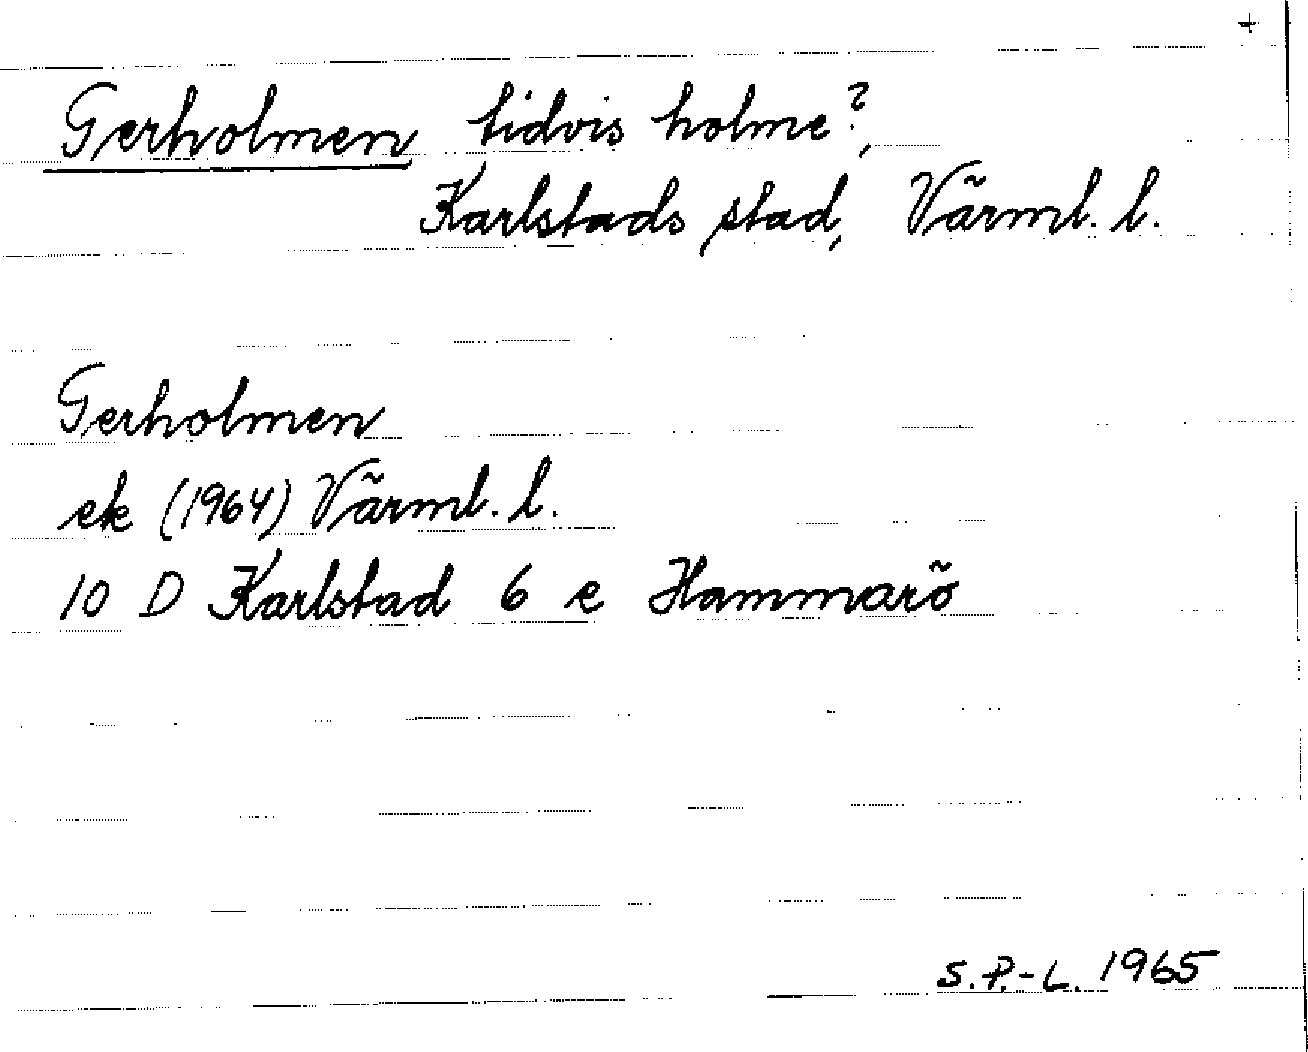 +
Gerholmen tidvis holme?,
Karlstads stad, Värml. l.
Gerholmen
ek (1964) Värml. l.
10 D Karlstad 6 e Hammarö
S.P.-L. 1965